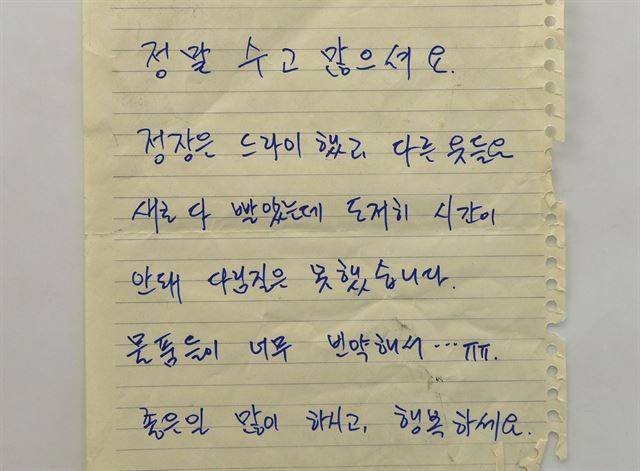 정말 수고 많으셔요.
정장은 드라이 했고, 다른 옷들도
새로 다 빨았는데 도저히 시간이
안돼 다림질은 못했습니다.
물품들이 너무 빈약해서…ㅠㅠ.
좋은일 많이 하시고, 행복하세요.